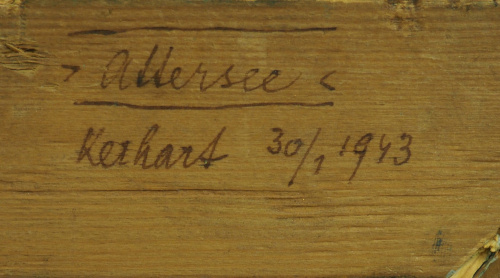 > Attersee <
Kerhart 30/1 1943